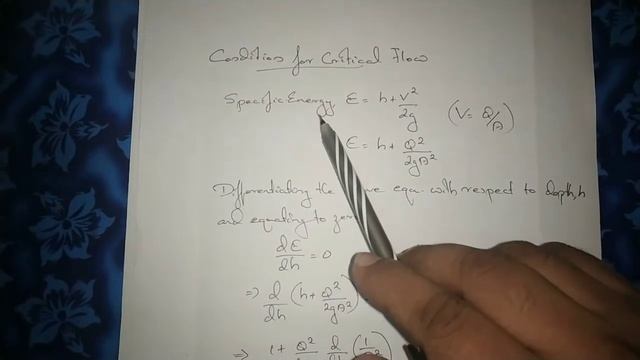 Condition for Critical Flow
Specific Energy E = h + V²/2g (V = Q/A)
E = h + Q²/2gA²
Differentiating the equ. with respect to depth, h
and equating to
dE/dh = 0
⇒ d/dh (h + Q²/2gA²)
⇒ 1 + Q²